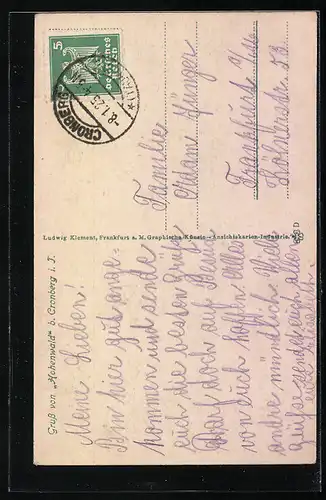 Gruß von „Hohenwald" b. Cronberg i. T.
Meine Lieben!
Bin hier gut ange-
kommen und sende
euch die besten Grüße
Darf doch auf Besuch
von euch hoffen. Alles
andre mündlich. Viele
grüße sendet euch allen
Ludwig Klement, Frankfurt a. M. Graphische Kunst- Ansichtskarten-Industrie.
5
Deutsches
Reich
CRONBERG
-8.1.25
Familie
Adam
Frankfurt a/
53